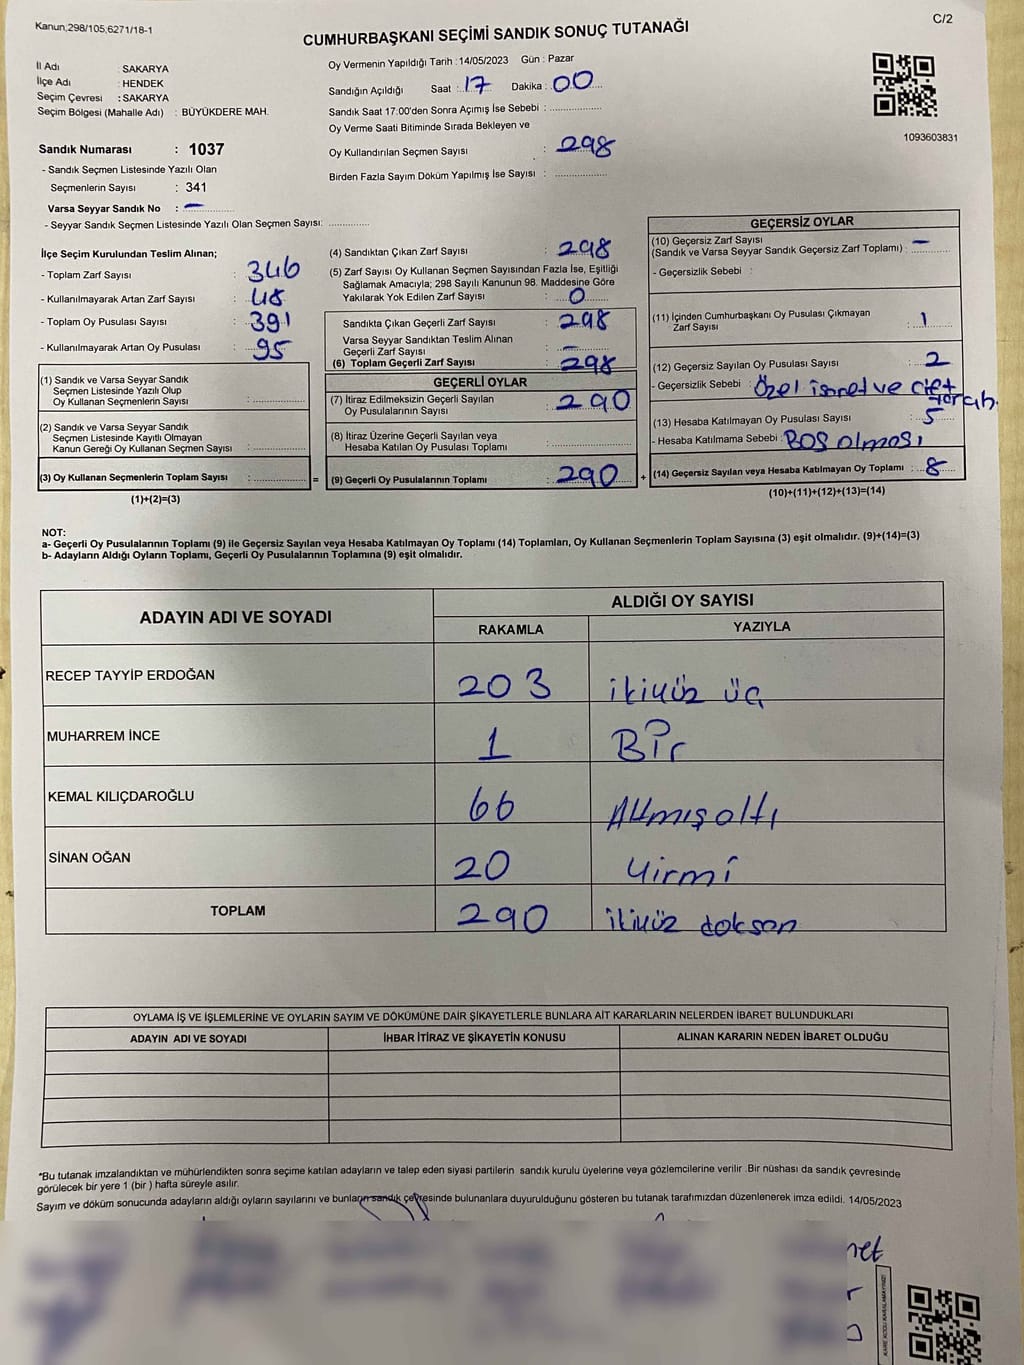 Kanun,298/105,6271/18-1
C/2
CUMHURBAŞKANI SEÇİMİ SANDIK SONUÇ TUTANAĞI
İl Adı : SAKARYA
İlçe Adı : HENDEK
Seçim Çevresi : SAKARYA
Seçim Bölgesi (Mahalle Adı) : BÜYÜKDERE MAH.
Sandık Numarası : 1037
- Sandık Seçmen Listesinde Yazılı Olan
Seçmenlerin Sayısı : 341
Varsa Seyyar Sandık No : –
- Seyyar Sandık Seçmen Listesinde Yazılı Olan Seçmen Sayısı: ..............
Oy Vermenin Yapıldığı Tarih : 14/05/2023 Gün : Pazar
Sandığın Açıldığı Saat : 17 Dakika : 00
Sandık Saat 17:00'den Sonra Açımış İse Sebebi : ..............
Oy Verme Saati Bitiminde Sırada Bekleyen ve
Oy Kullandırılan Seçmen Sayısı : 298
Birden Fazla Sayım Döküm Yapılmış İse Sayısı : ..............
1093603831
İlçe Seçim Kurulundan Teslim Alınan;
- Toplam Zarf Sayısı : 346
- Kullanılmayarak Artan Zarf Sayısı : 48
- Toplam Oy Pusulası Sayısı : 391
- Kullanılmayarak Artan Oy Pusulası : 95
(1) Sandık ve Varsa Seyyar Sandık
Seçmen Listesinde Yazılı Olup
Oy Kullanan Seçmenlerin Sayısı : ..............
(2) Sandık ve Varsa Seyyar Sandık
Seçmen Listesinde Kayıtlı Olmayan
Kanun Gereği Oy Kullanan Seçmen Sayısı : ..............
(3) Oy Kullanan Seçmenlerin Toplam Sayısı : .............. =
(1)+(2)=(3)
(4) Sandıktan Çıkan Zarf Sayısı : 298
(5) Zarf Sayısı Oy Kullanan Seçmen Sayısından Fazla İse, Eşitliği
Sağlamak Amacıyla; 298 Sayılı Kanunun 98. Maddesine Göre
Yakılarak Yok Edilen Zarf Sayısı : 0
Sandıkta Çıkan Geçerli Zarf Sayısı : 298
Varsa Seyyar Sandıktan Teslim Alınan
Geçerli Zarf Sayısı : –
(6) Toplam Geçerli Zarf Sayısı : 298
GEÇERLİ OYLAR
(7) İtiraz Edilmeksizin Geçerli Sayılan
Oy Pusulalarının Sayısı : 290
(8) İtiraz Üzerine Geçerli Sayılan veya
Hesaba Katılan Oy Pusulası Toplamı : ..............
(9) Geçerli Oy Pusulalarının Toplamı : 290 +
GEÇERSİZ OYLAR
(10) Geçersiz Zarf Sayısı
(Sandık ve Varsa Seyyar Sandık Geçersiz Zarf Toplamı) : –
- Geçersizlik Sebebi :
(11) İçinden Cumhurbaşkanı Oy Pusulası Çıkmayan
Zarf Sayısı : 1
(12) Geçersiz Sayılan Oy Pusulası Sayısı : 2
- Geçersizlik Sebebi : Özel işaret ve çift
(13) Hesaba Katılmayan Oy Pusulası Sayısı : 5
- Hesaba Katılmama Sebebi : BOŞ olması
(14) Geçersiz Sayılan veya Hesaba Katılmayan Oy Toplamı : 8
(10)+(11)+(12)+(13)=(14)
NOT:
a- Geçerli Oy Pusulalarının Toplamı (9) ile Geçersiz Sayılan veya Hesaba Katılmayan Oy Toplamı (14) Toplamları, Oy Kullanan Seçmenlerin Toplam Sayısına (3) eşit olmalıdır. (9)+(14)=(3)
b- Adayların Aldığı Oyların Toplamı, Geçerli Oy Pusulalarının Toplamına (9) eşit olmalıdır.
ADAYIN ADI VE SOYADI ALDIĞI OY SAYISI
RAKAMLA YAZIYLA
RECEP TAYYİP ERDOĞAN 203 ikiyüz üç
MUHARREM İNCE 1 Bir
KEMAL KILIÇDAROĞLU 66 Altmışaltı
SİNAN OĞAN 20 yirmi
TOPLAM 290 ikiyüz doksan
OYLAMA İŞ VE İŞLEMLERİNE VE OYLARIN SAYIM VE DÖKÜMÜNE DAİR ŞİKAYETLERLE BUNLARA AİT KARARLARIN NELERDEN İBARET BULUNDUKLARI
ADAYIN ADI VE SOYADI İHBAR İTİRAZ VE ŞİKAYETİN KONUSU ALINAN KARARIN NEDEN İBARET OLDUĞU
*Bu tutanak imzalandıktan ve mühürlendikten sonra seçime katılan adayların ve talep eden siyasi partilerin sandık kurulu üyelerine veya gözlemcilerine verilir .Bir nüshası da sandık çevresinde
görülecek bir yere 1 (bir ) hafta süreyle asılır.
Sayım ve döküm sonucunda adayların aldığı oyların sayılarını ve bunların sandık çevresinde bulunanlara duyurulduğunu gösteren bu tutanak tarafımızdan düzenlenerek imza edildi. 14/05/2023